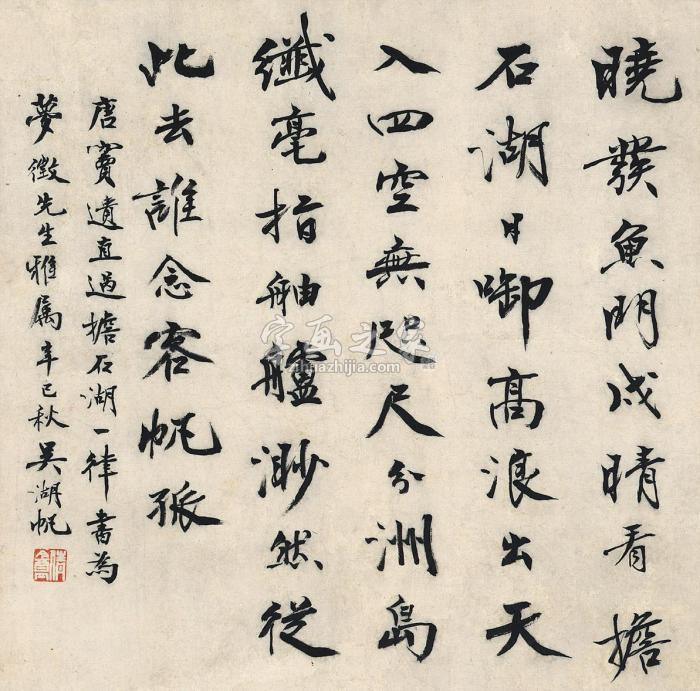 曉發魚門戍晴看擔
石湖日啣高浪出天
入四空無咫尺分洲島
纖毫指舳艫渺然從
此去誰念客帆孤
唐竇遺直過擔石湖一律書為
夢徵先生雅屬辛巳秋吳湖帆
字画之家
zihuazhijia.com